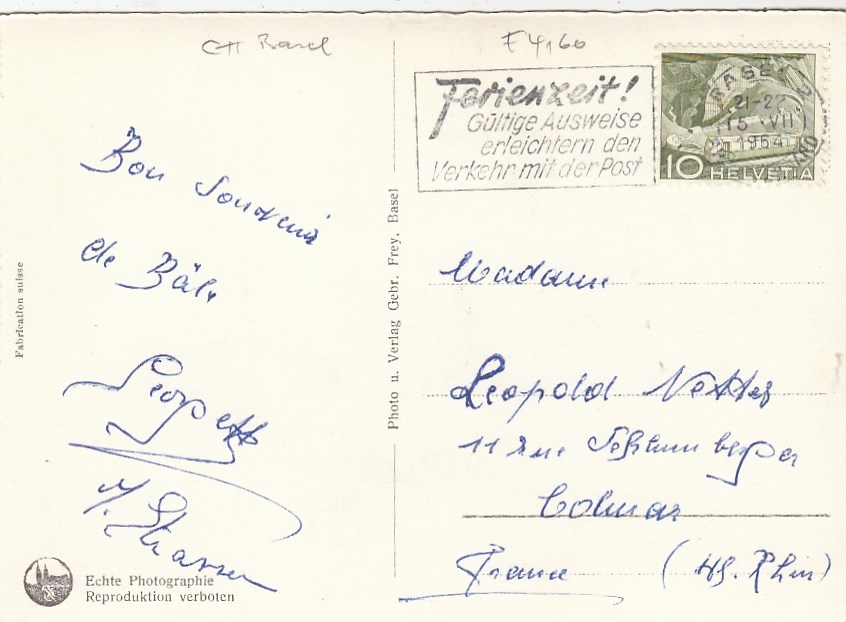 CH Basel
F 4,60
Ferienzeit!
Gültige Ausweise
erleichtern den
Verkehr mit der Post
BASEL 2
21-22
15 VII
1954
10 HELVETIA
Bon souvenir
de Bâle
Leop
Strasser
Fabrication suisse
Photo u. Verlag Gebr. Frey, Basel
Madame
Leopold Netter
11 rue Schlumberger
Colmar
France (Ht. Rhin)
Echte Photographie
Reproduktion verboten